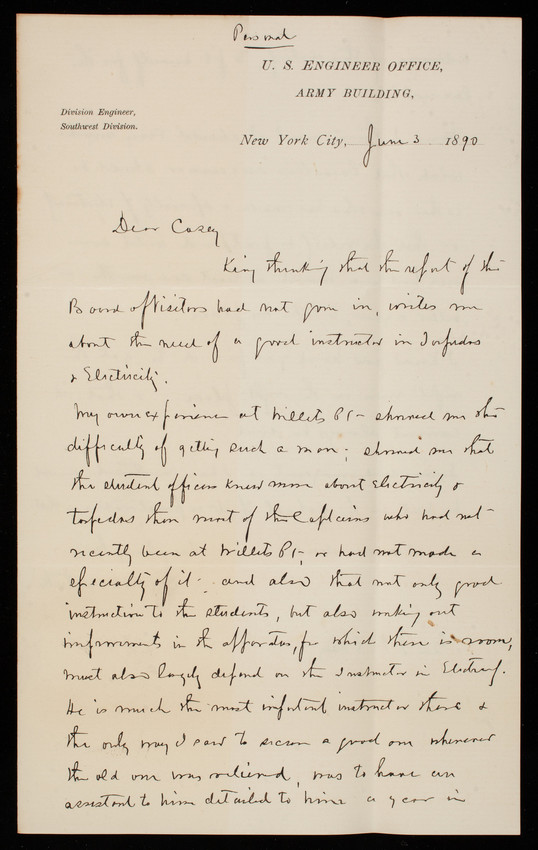 Personal
U. S. ENGINEER OFFICE,
ARMY BUILDING,
Division Engineer,
Southwest Division.
New York City, June 3 1890
Dear Casey
King thinking that the report of the
Board of Visitors had not gone in, writes me
about the need of a good instructor in Torpedoes
& Electricity.
My own experience at Willets Pt- showed me the
difficulty of getting such a man; showed me that
the student officers knew more about Electricity &
torpedoes than most of the Captains who had not
recently been at Willets Pt-, or had not made a
specialty of it- and also that not only good
instruction to the students, but also making out
improvements in the apparatus, for which there is room,
must also largely depend on the Instructor in Electricity.
He is much the most important instructor there &
the only way I saw to secure a good one whenever
the old one was relieved, was to have an
assistant to him detailed to him a year in